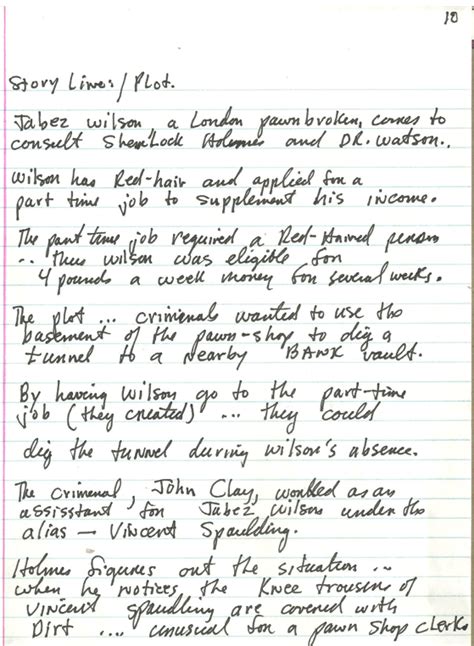 10
Story Line:/Plot.
Jabez Wilson a London pawnbroker, comes to
consult Sherlock Holmes and DR. Watson..
Wilson has Red-hair and applied for a
part time job to supplement his income.
The part time job required a Red-Haired person
.. thus Wilson was eligible for
4 pounds a week money for several weeks.
The plot ... criminals wanted to use the
basement of the pawn-shop to dig a
tunnel to a nearby BANK vault.
By having Wilson go to the part-time
job (they created) ... they could
dig the tunnel during Wilson's absence.
The criminal, John Clay, worked as an
assisstant for Jabez Wilson under the
alias — Vincent Spaulding.
Holmes figures out the situation ..
when he notices the Knee trousers of
Vincent Spaudling are covered with
Dirt .... unusual for a pawn shop clerk.